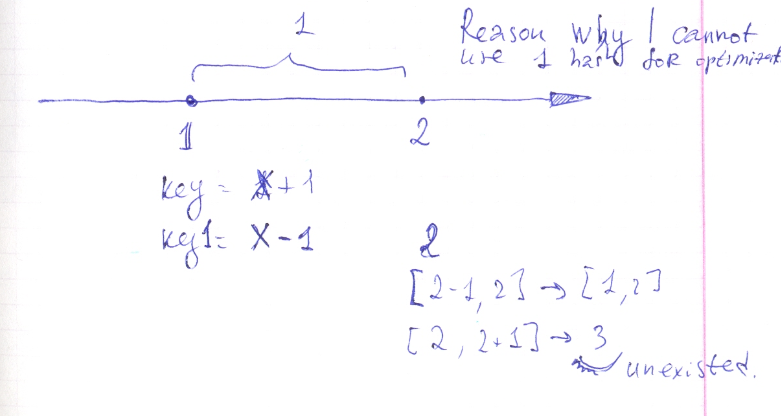 1
Reason why I cannot
use 1 hash for optimizat
1
2
key = X + 1
key1 = X - 1
2
[2-1, 2] → [1, 2]
[2, 2+1] → 3
unexisted.